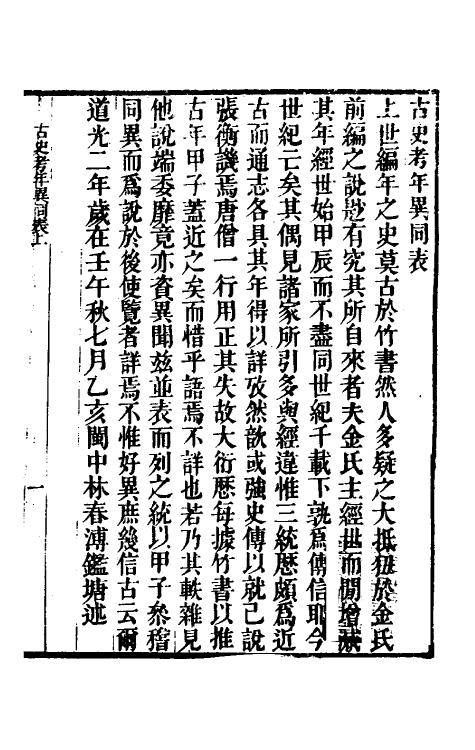 古史考年異同表
上世編年之史莫古於竹書然人多疑之大抵狃於金氏
前編之說尟有究其所自來者夫金氏主經世而閒增
其年經世始甲辰而不盡同世紀千載下孰爲傳信耶今
世紀亡矣其偶見諸家所引多與經違惟三統厯頗爲近
古而通志各具其年得以詳攷然歆或強史傳以就己說
張衡譏焉唐僧一行用正其失故大衍厯每據竹書以推
古年甲子蓋近之矣而惜乎語焉不詳也若乃其軼雜見
他說端委靡竟亦資異聞兹並表而列之統以甲子參稽
同異而爲說於後使覽者詳焉不惟好異庶幾信古云爾
道光二年歲在壬午秋七月乙亥閩中林春溥鑑塘述
古史考年異同表上
一